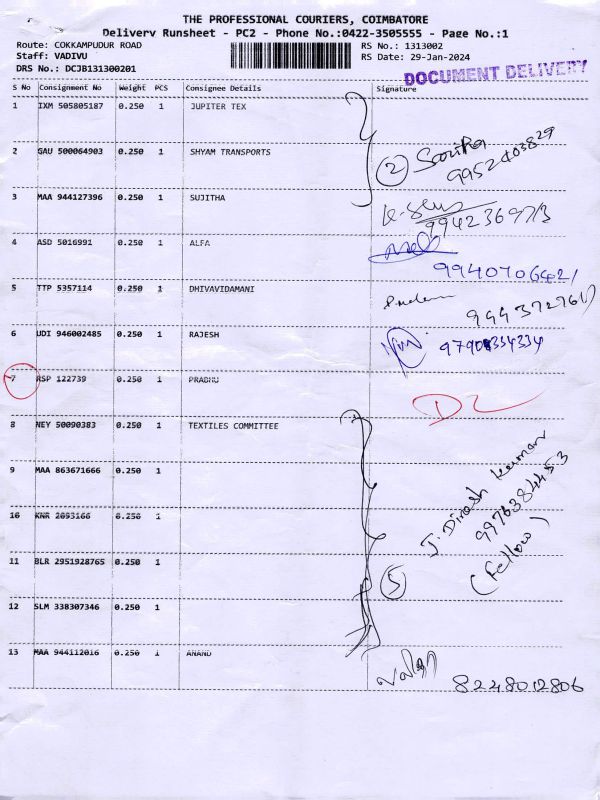 THE PROFESSIONAL COURIERS, COIMBATORE
Delivery Runsheet - PC2 - Phone No.:0422-3505555 - Page No.:1
Route: COKKAMPUDUR ROAD RS No.: 1313002
Staff: VADIVU RS Date: 29-Jan-2024
DRS No.: DCJB131300201
DOCUMENT DELIVERY
S No Consignment No Weight PCS Consignee Details Signature
1 IXM 505805187 0.250 1 JUPITER TEX
2 GAU 500064903 0.250 1 SHYAM TRANSPORTS
2
9952403829
3 MAA 944127396 0.250 1 SUJITHA
4 ASD 5016991 0.250 1 ALFA
9940706421
5 TTP 5357114 0.250 1 DHIVAVIDAMANI
6 UDI 946002485 0.250 1 RAJESH
7 RSP 122739 0.250 1 PRABHU
DL
8 NEY 50090383 0.250 1 TEXTILES COMMITTEE
9 MAA 863671666 0.250 1
J. Dinesh Kumar
9976384453
(Fellow)
10 KNR 2093166 0.250 1
11 BLR 2951928765 0.250 1
5
12 SLM 338307346 0.250 1
13 MAA 944112016 0.250 1 ANAND
8248012806